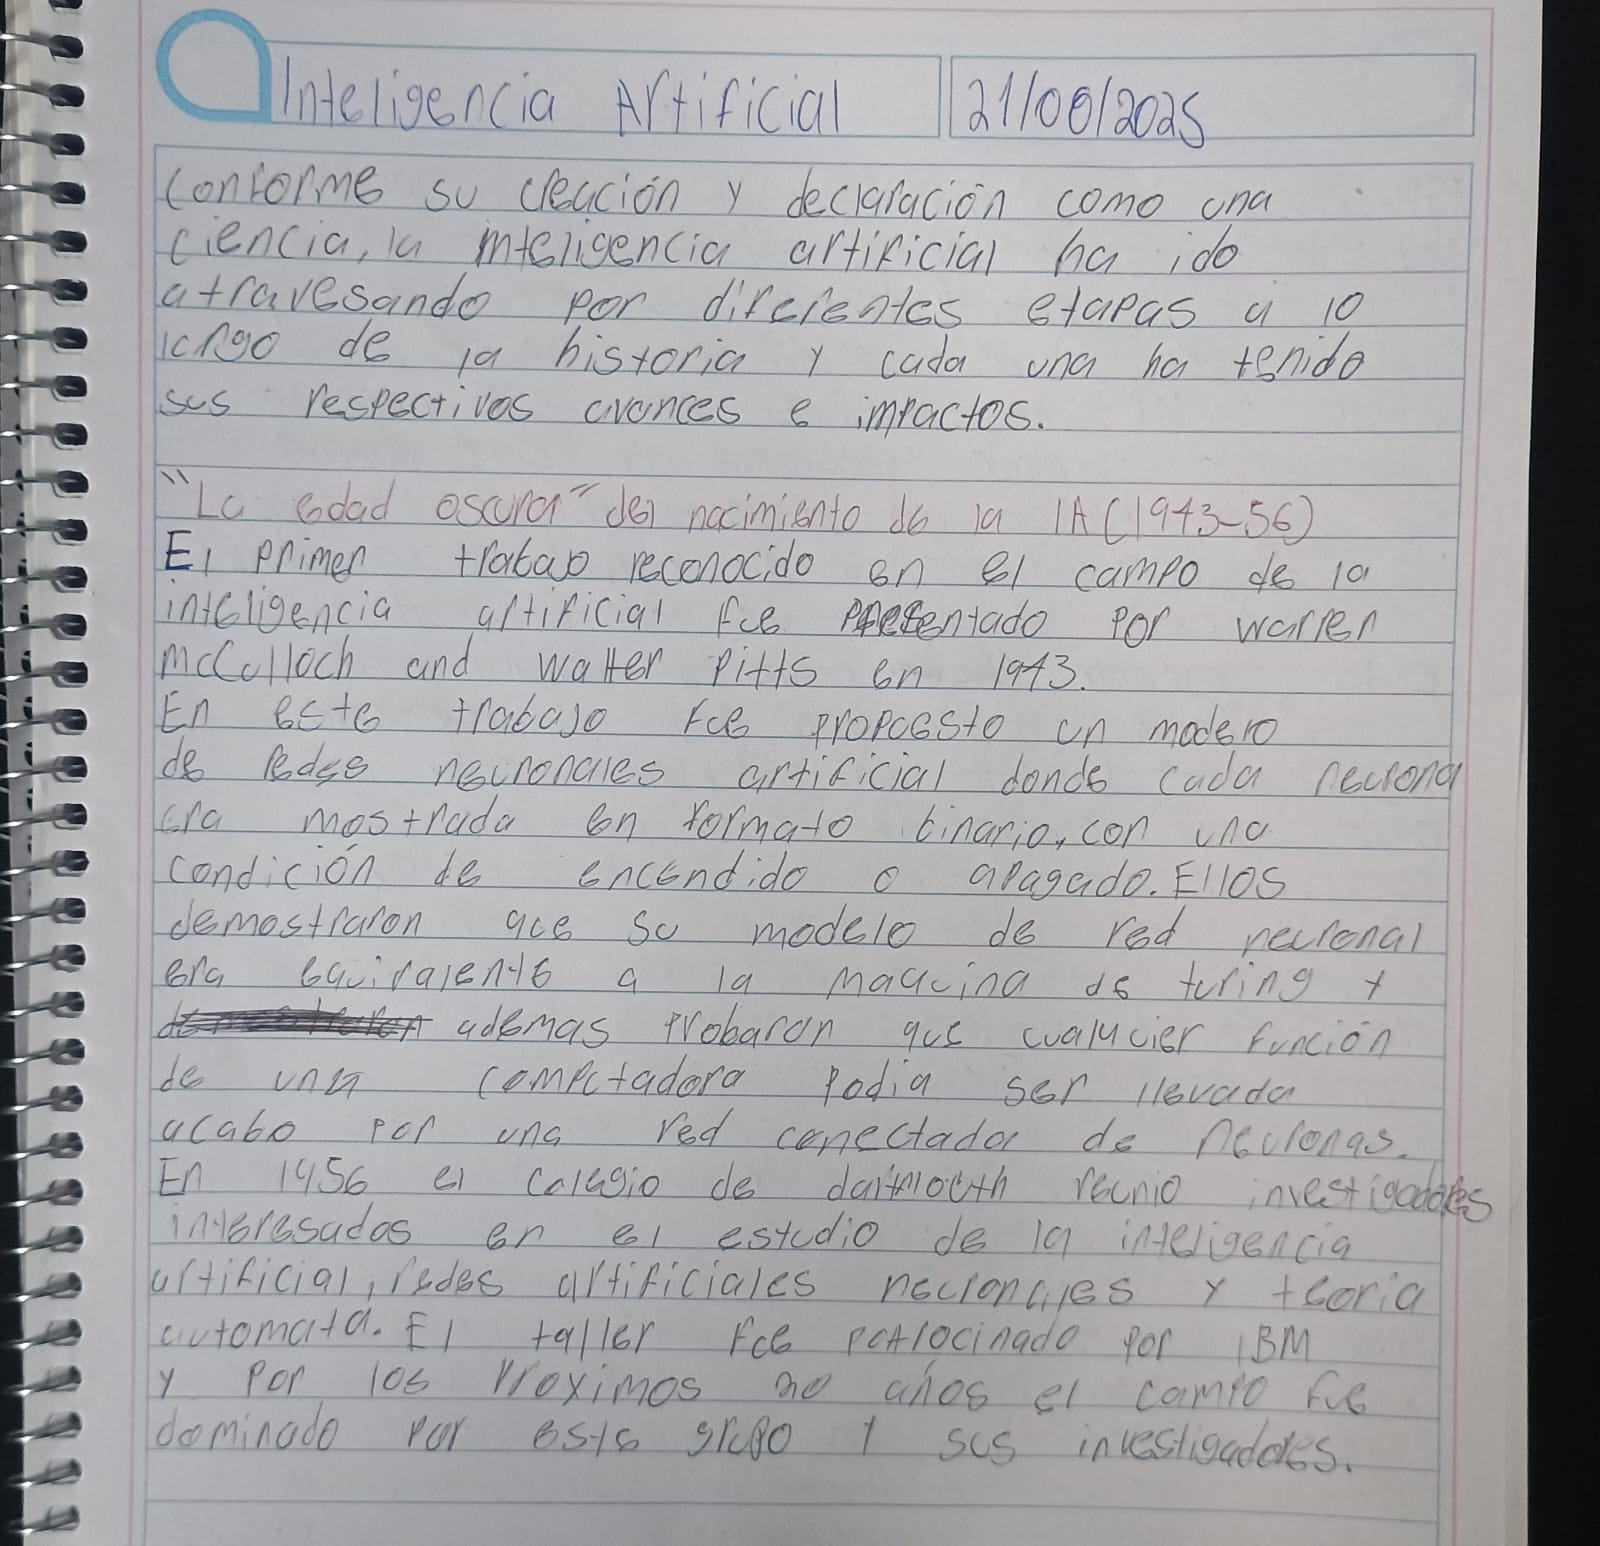 Inteligencia Artificial 21/08/2025
Conforme su creación y declaración como una
ciencia, la inteligencia artificial ha ido
atravesando por diferentes etapas a lo
largo de la historia y cada una ha tenido
sus respectivos avances e impactos.
"La edad oscura" del nacimiento de la IA (1943-56)
El primer trabajo reconocido en el campo de la
inteligencia artificial fue presentado por warren
mcCulloch and walter Pitts en 1943.
En este trabajo fue propuesto un modelo
de redes neuronales artificial donde cada neurona
era mostrada en formato binario, con una
condición de encendido o apagado. Ellos
demostraron que su modelo de red neuronal
era equivalente a la maquina de turing y
ademas probaron que cualquier función
de una computadora podia ser llevada
acabo por una red conectada de neuronas.
En 1956 el colegio de dartmouth reunio investigadores
interesados en el estudio de la inteligencia
artificial, redes artificiales neuronales y teoria
automata. El taller fue patrocinado por IBM
y por los proximos 20 años el campo fue
dominado por este grupo y sus investigadores.